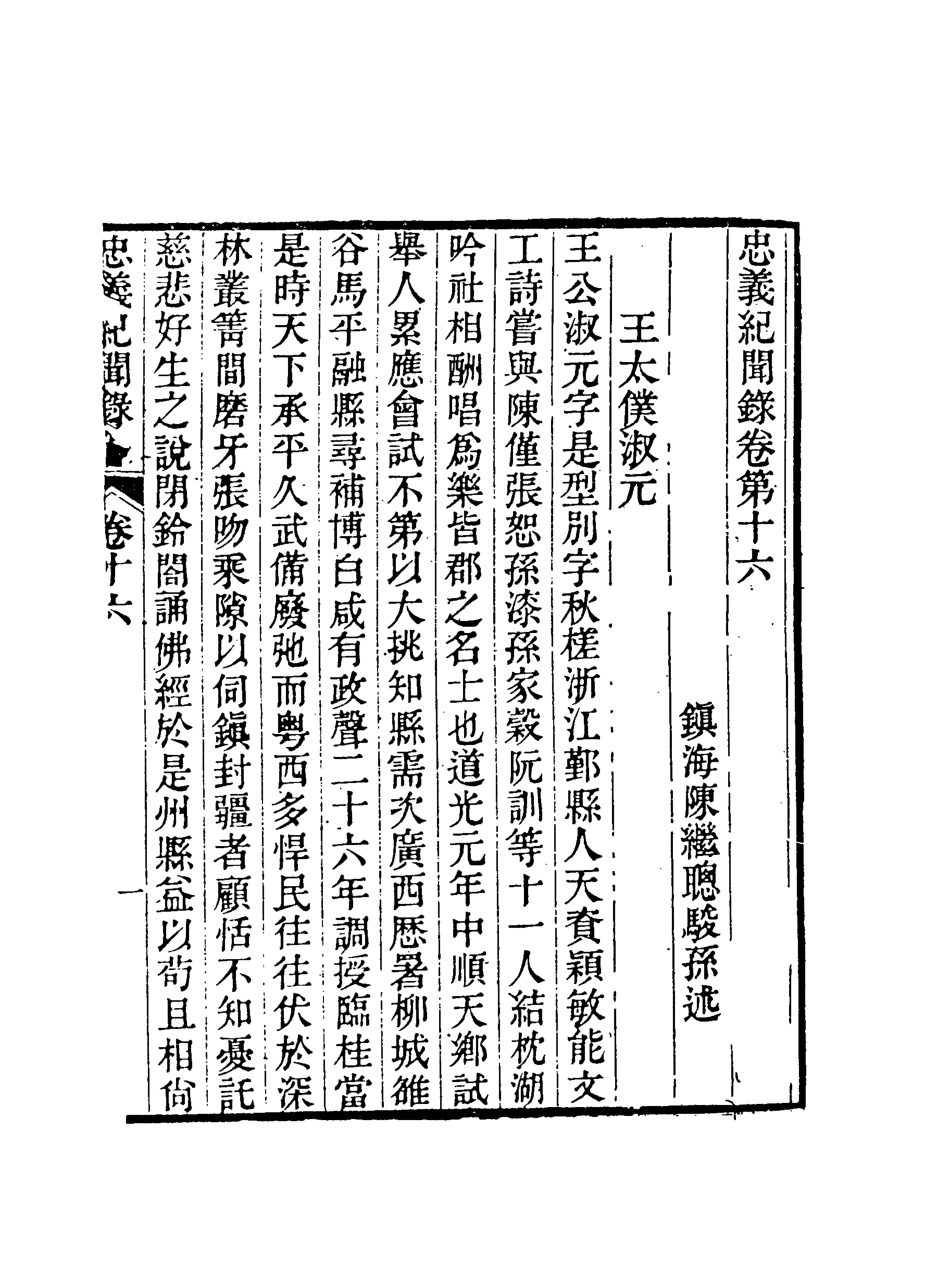 忠義紀聞錄卷第十六
鎭海陳繼聰駿孫述
王太僕淑元
王公淑元字是型別字秋槎浙江鄞縣人天資穎敏能文
工詩嘗與陳僅張恕孫漆孫家穀阮訓等十一人結枕湖
吟社相酬唱爲樂皆郡之名士也道光元年中順天鄉試
舉人累應會試不第以大挑知縣需次廣西歷署柳城雒
谷馬平融縣尋補博白咸有政聲二十六年調授臨桂當
是時天下承平久武備廢弛而粤西多悍民往往伏於深
林叢箐間磨牙張吻乘隙以伺鎭封疆者顧恬不知憂託
慈悲好生之說閉鈴閤誦佛經於是州縣益以苟且相尙
忠義紀聞錄 卷十六 一